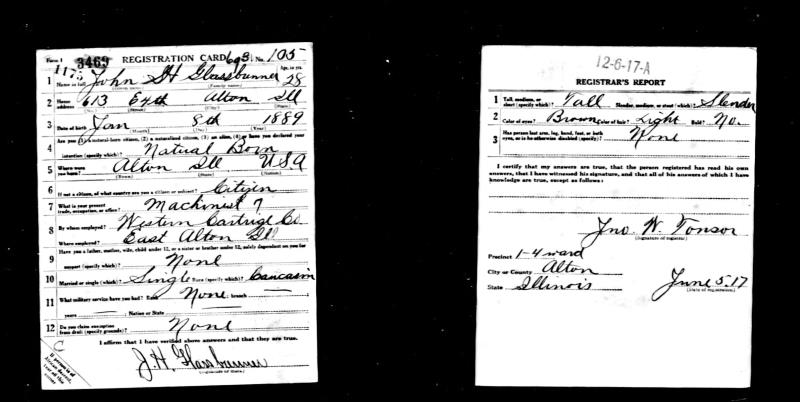 Form 1 3469 REGISTRATION CARD No. 105
1175
1 Name in full John H Glassbrunner 28
(Given name) (Family name) Age, in yrs.
2 Home address 613 E 4th Alton Ill
(No.) (Street) (City) (State)
3 Date of birth Jan 8th 1889
(Month) (Day) (Year)
4 Are you (1) a natural-born citizen, (2) a naturalized citizen, (3) an alien, (4) or have you declared your intention (specify which)? Natural Born
5 Where were you born? Alton Ill USA
(Town) (State) (Nation)
6 If not a citizen, of what country are you a citizen or subject? Citizen
7 What is your present trade, occupation, or office? Machinest 7
8 By whom employed? Western Cartrige Co.
Where employed? East Alton Ill
9 Have you a father, mother, wife, child under 12, or a sister or brother under 12, solely dependent on you for support (specify which)? None
10 Married or single (which)? Single Race (specify which)? Caucasin
11 What military service have you had? Rank None ; branch
years ; Nation or State
12 Do you claim exemption from draft (specify grounds)? None
I affirm that I have verified above answers and that they are true.
C
J. H. Glassbrunner
(Signature or mark)
If person is of African descent, tear off this corner
12-6-17-A
REGISTRAR'S REPORT
1 Tall, medium, or short (specify which)? Tall Slender, medium, or stout (which)? Slender
2 Color of eyes? Brown Color of hair? Light Bald? No.
3 Has person lost arm, leg, hand, foot, or both eyes, or is he otherwise disabled (specify)? None
I certify that my answers are true, that the person registered has read his own answers, that I have witnessed his signature, and that all of his answers of which I have knowledge are true, except as follows:
Jno. W. Tonsor
(Signature of registrar)
Precinct 1-4 ward
City or County Alton
State Illinois June 5-17
(Date of registration)